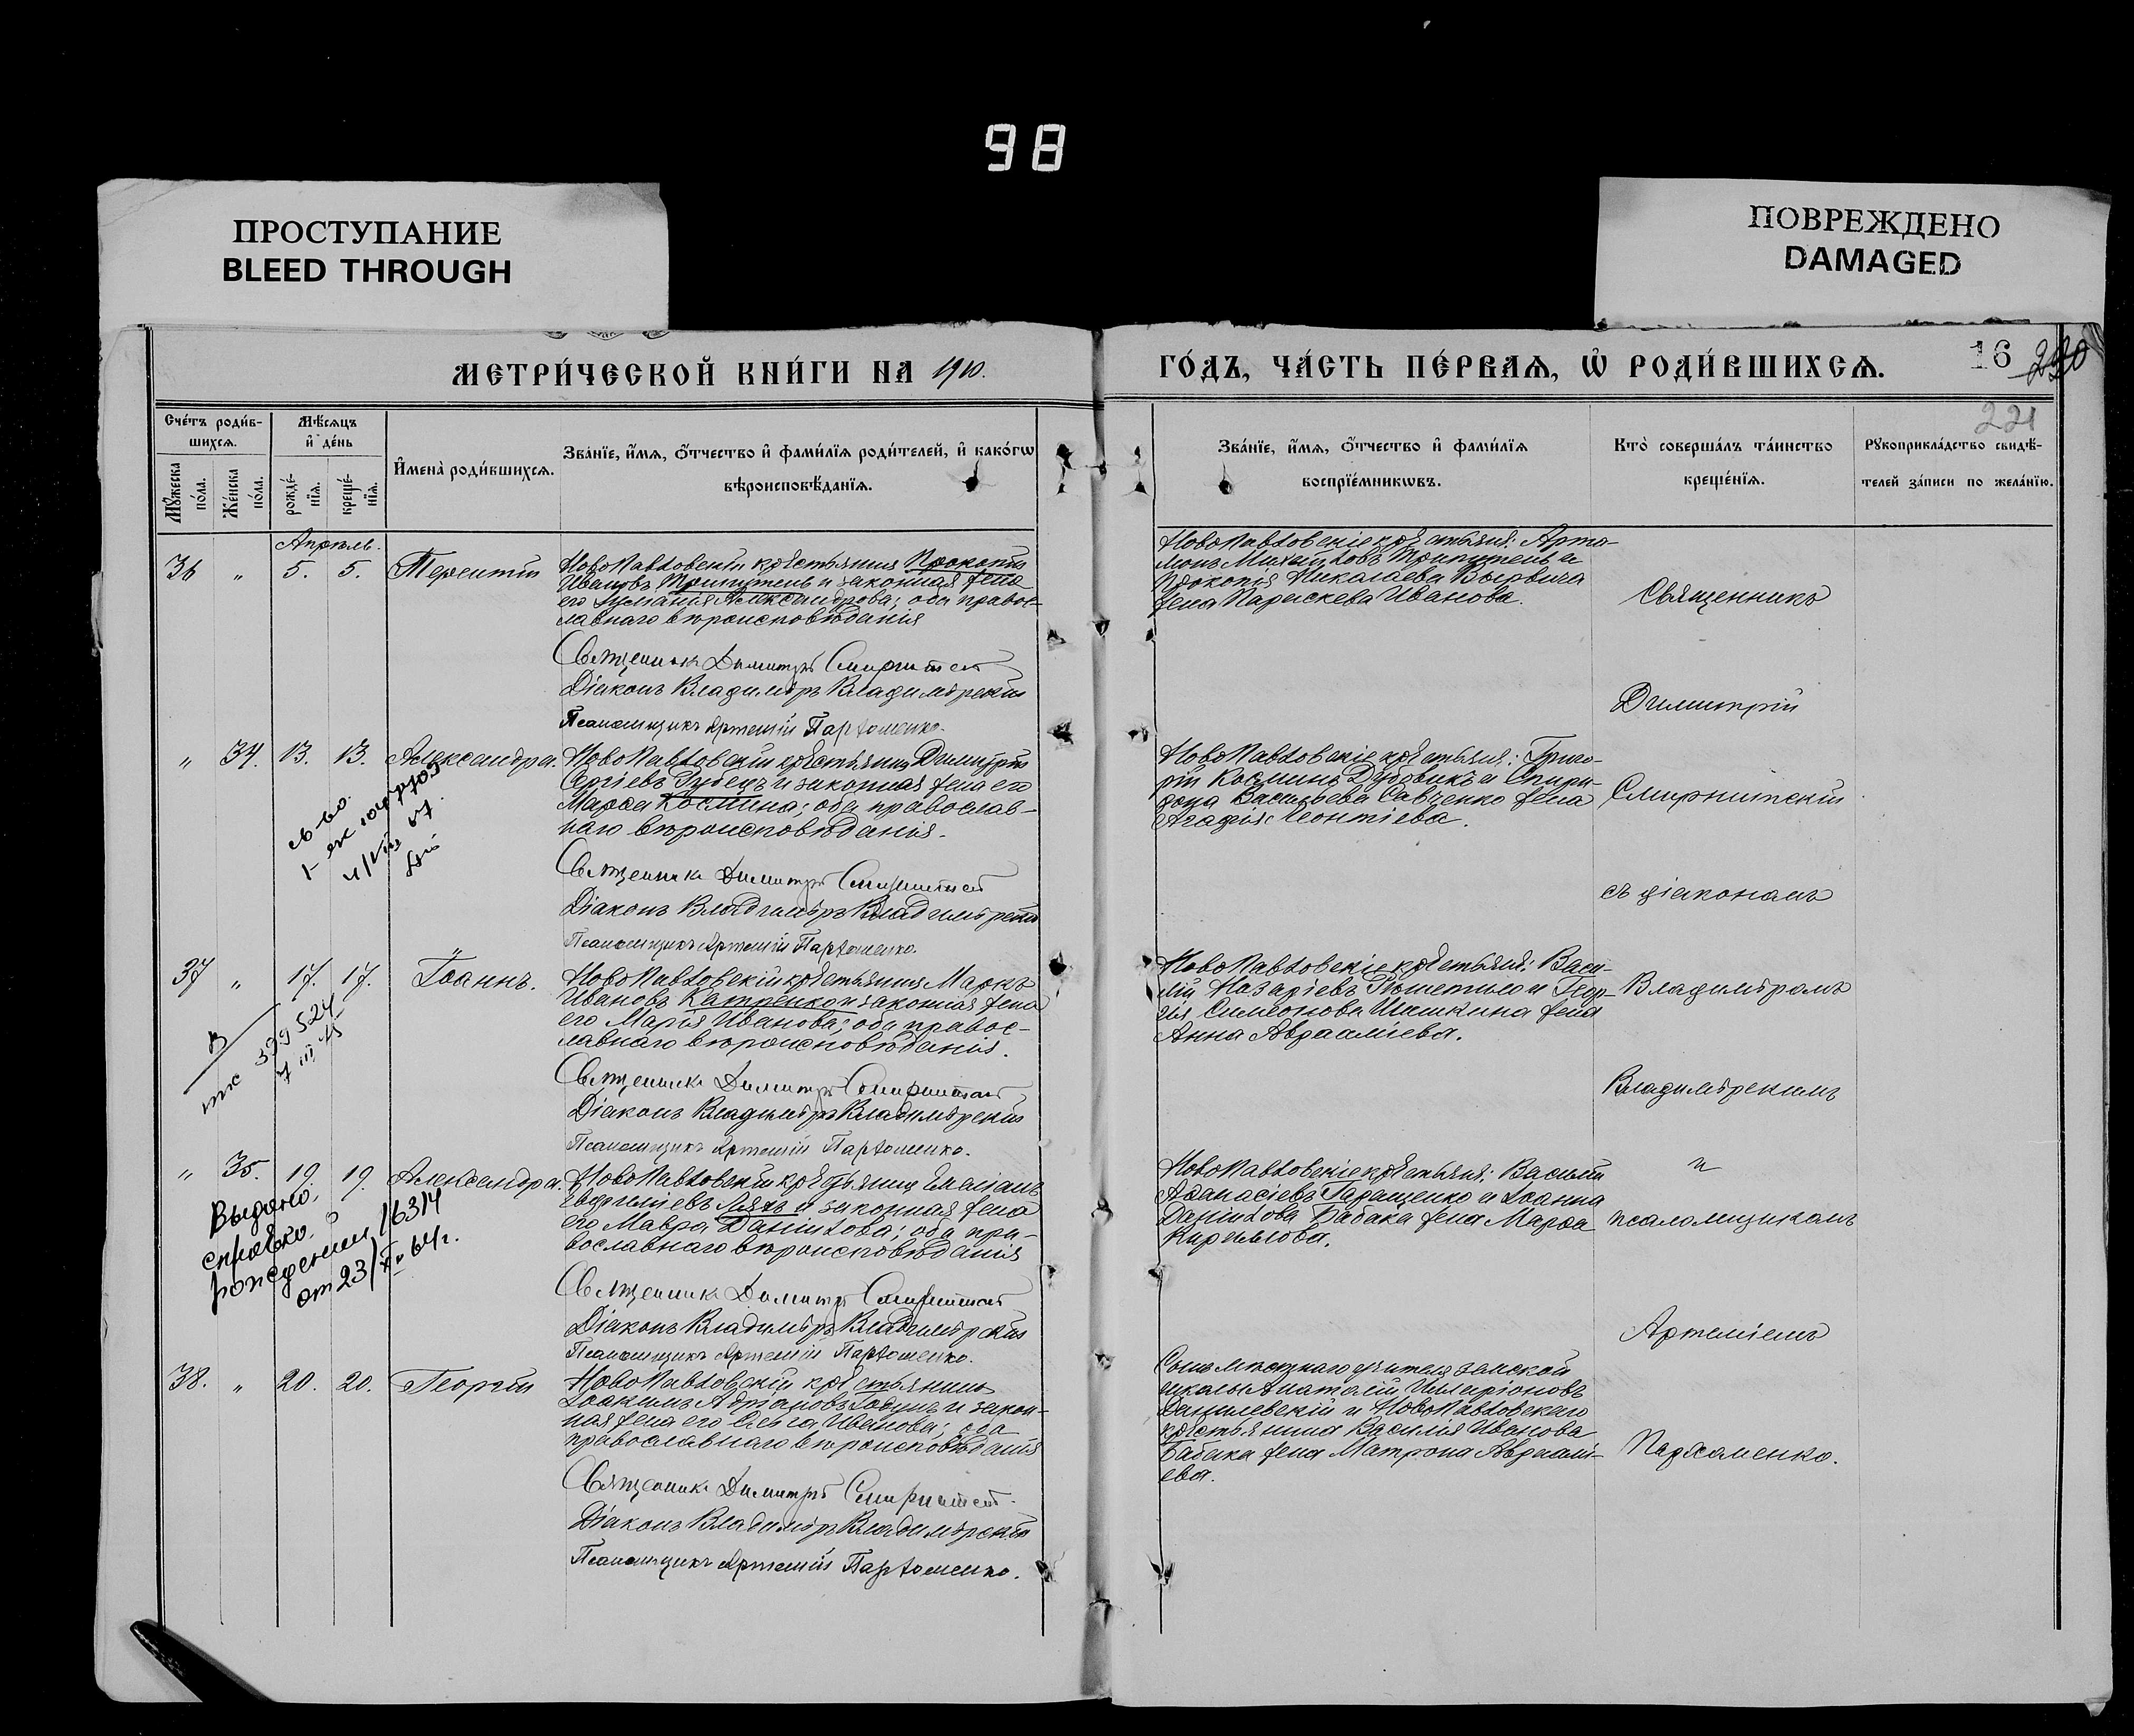 98
ПРОСТУПАНИЕ
BLEED THROUGH
ПОВРЕЖДЕНО
DAMAGED
МЕТРИ́ЧЕСКОЙ КНИ́ГИ НА 1910.
ГО́ДЪ, ЧА́СТЬ ПЕ́РВАѦ, Ѡ҆ РОДИ́ВШИХСѦ.
16 220
221
Счéтъ роди́в-
шихсѧ.
Мꙋ́жеска
по́ла.
Же́нска
по́ла.
Мѣ́сѧцъ
и҆ де́нь
рожде́-
нїѧ.
креще́-
нїѧ.
И҆мена̀ роди́вшихсѧ.
Зва́нїе, и҆́мѧ, ѻ҆́тчество и҆ фами́лїѧ роди́телей, и҆ како́гѡ
вѣроисповѣ́данїѧ.
Зва́нїе, и҆́мѧ, ѻ҆́тчество и҆ фами́лїѧ
воспрїе́мникѡвъ.
Кто̀ соверша́лъ та́инство
креще́нїѧ.
Рꙋкоприкла́дство свидѣ́-
телей за́писи по жела́нїю.
Апрѣль.
36 „ 5. 5. Терентій
НовоПавловскій крестьянинъ Прокопій
Ивановъ и законная жена
его Александрова; оба правос-
лавнаго вѣроисповѣданія
Священникъ Димитрій Смирнитскій
Діаконъ Владиміръ Владимірскій
Псаломщикъ Артемій Пархоменко.
НовоПавловскіе крестьяне: Арта-
монъ Михайловъ и
Прокопія Николаева
жена Параскева Иванова.
„ 34. 13. 13. Александра.
НовоПавловскій крестьянинъ Димитрій
Сергіевъ Зубецъ и законная жена его
Марфа Космина; оба православ-
наго вѣроисповѣданія.
Священникъ Димитрій Смирнитскій
Діаконъ Владиміръ Владимірскій
Псаломщикъ Артемій Пархоменко.
НовоПавловскіе крестьяне: Григо-
рій Косминъ Дубовикъ и Спири-
дона Васильева Савченко жена
Агафія Леонтіева.
37 „ 17. 17. Іоаннъ.
399524
7 III 45
НовоПавловскій крестьянинъ Маркъ
Ивановъ Катренко и законная жена
его Марія Иванова; оба правос-
лавнаго вѣроисповѣданія.
Священникъ Димитрій Смирнитскій
Діаконъ Владиміръ Владимірскій
Псаломщикъ Артемій Пархоменко.
НовоПавловскіе крестьяне: Васи-
лій Назаріевъ и Геор-
гія Симеонова Шишкина жена
Анна Авраамiева.
„ 35. 19. 19. Александра.
Выдано
справка
рождении 16314
от 23/ 64г.
НовоПавловскій крестьянинъ Емеліанъ
Евфиміевъ Ляхъ и законная жена
его Мавра Даніилова; оба пра-
вославнаго вѣроисповѣданія
Священникъ Димитрій Смирнитскій
Діаконъ Владиміръ Владимірскій
Псаломщикъ Артемій Пархоменко.
НовоПавловскіе крестьяне: Василій
Афанасіевъ Гаращенко и Іоанна
Даніилова Бабака жена Марфа
Кириллова.
38. „ 20. 20. Георгій
НовоПавловскій крестьянинъ
Іоакимъ Адріановъ и закон-
ная жена его Ольга Иванова; оба
православнаго вѣроисповѣданія
Священникъ Димитрій Смирнитскій.
Діаконъ Владиміръ Владимірскій
Псаломщикъ Артемій Пархоменко.
Сынъ мѣстнаго учителя земской
школы Анатолій Иларіоновъ
Данилевскій и НовоПавловскаго
крестьянина Василія Иванова
Бабака жена Матрона Авраамі-
ева.
Священникъ
Димитрій
Смирнитскій
съ діакономъ
Владиміромъ
Владимірскимъ
и
псаломщикомъ
Артеміемъ
Пархоменко.